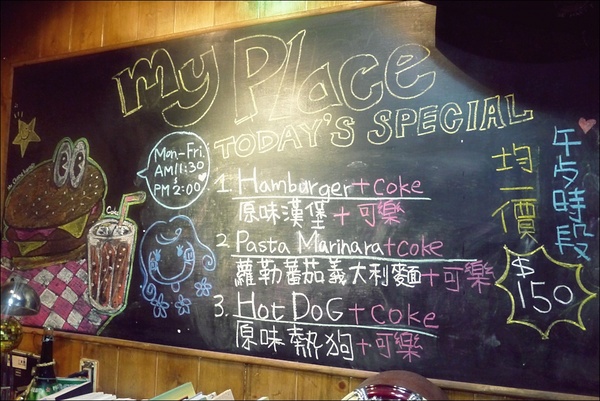 my Place
TODAY'S SPECIAL
Mon-Fri.
AM11:30
PM 2:00
1. Hamburger + coke
原味漢堡 + 可樂
2. Pasta Marinara + coke
蘿勒蕃茄義大利麵 + 可樂
3. Hot DoG + coke
原味熱狗 + 可樂
午ㄘ時段
均一價
$150